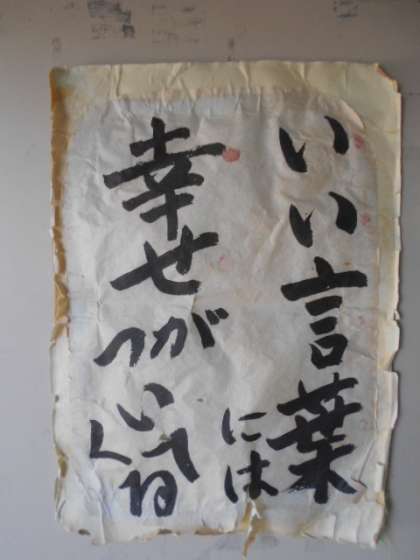 いい言葉には
幸せがついてくるね